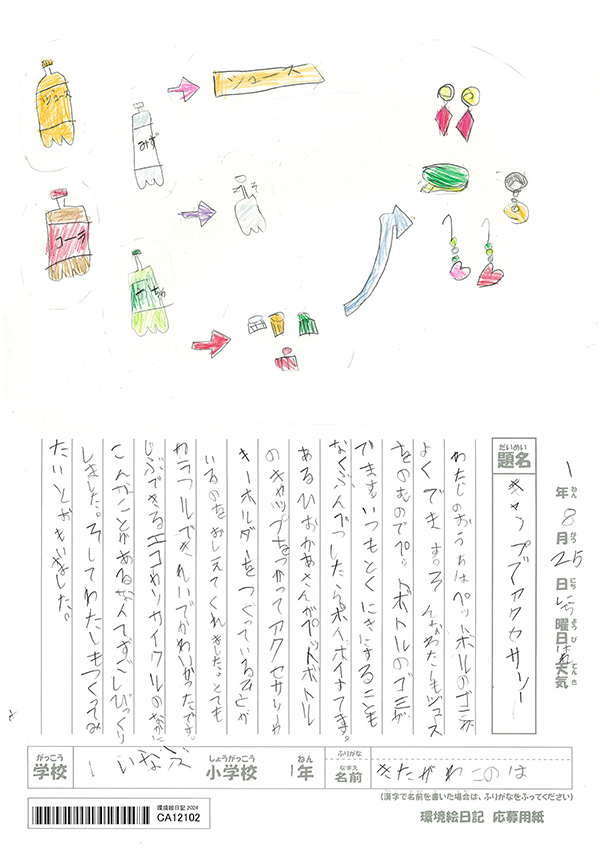 ジュース
みず
コーラ
ジュース
1年8月25日にち曜日はれ天気
だいめい
題名
キャップでアクセサリー
わたしのおうちはペットボトルのゴミが
よくでます。そんなわたしもジュース
をのむのでペットボトルのゴミが
でます。いつもとくにきにすることも
なくぶんべつしたらポイポイすてます。
あるひおかあさんがペットボトル
のキャップをつかってアクセサリーや
キーホルダーをつくっているひとが
いるのをおしえてくれました。とても
カラフルできれいでかわいかったです。
じぶんできるエコやリサイクルのなかに
こんなことがあるなんてすごいびっくり
しました。そしてわたしもつくってみ
たいとおもいました。
がっこう
学校
いなぶ
しょうがっこう
小学校
1
ねん
年
ふりがな
なまえ
名前
きたがわこのは
(漢字で名前を書いた場合は、ふりがなをふってください)
環境絵日記 2024
CA12102
環境絵日記 応募用紙